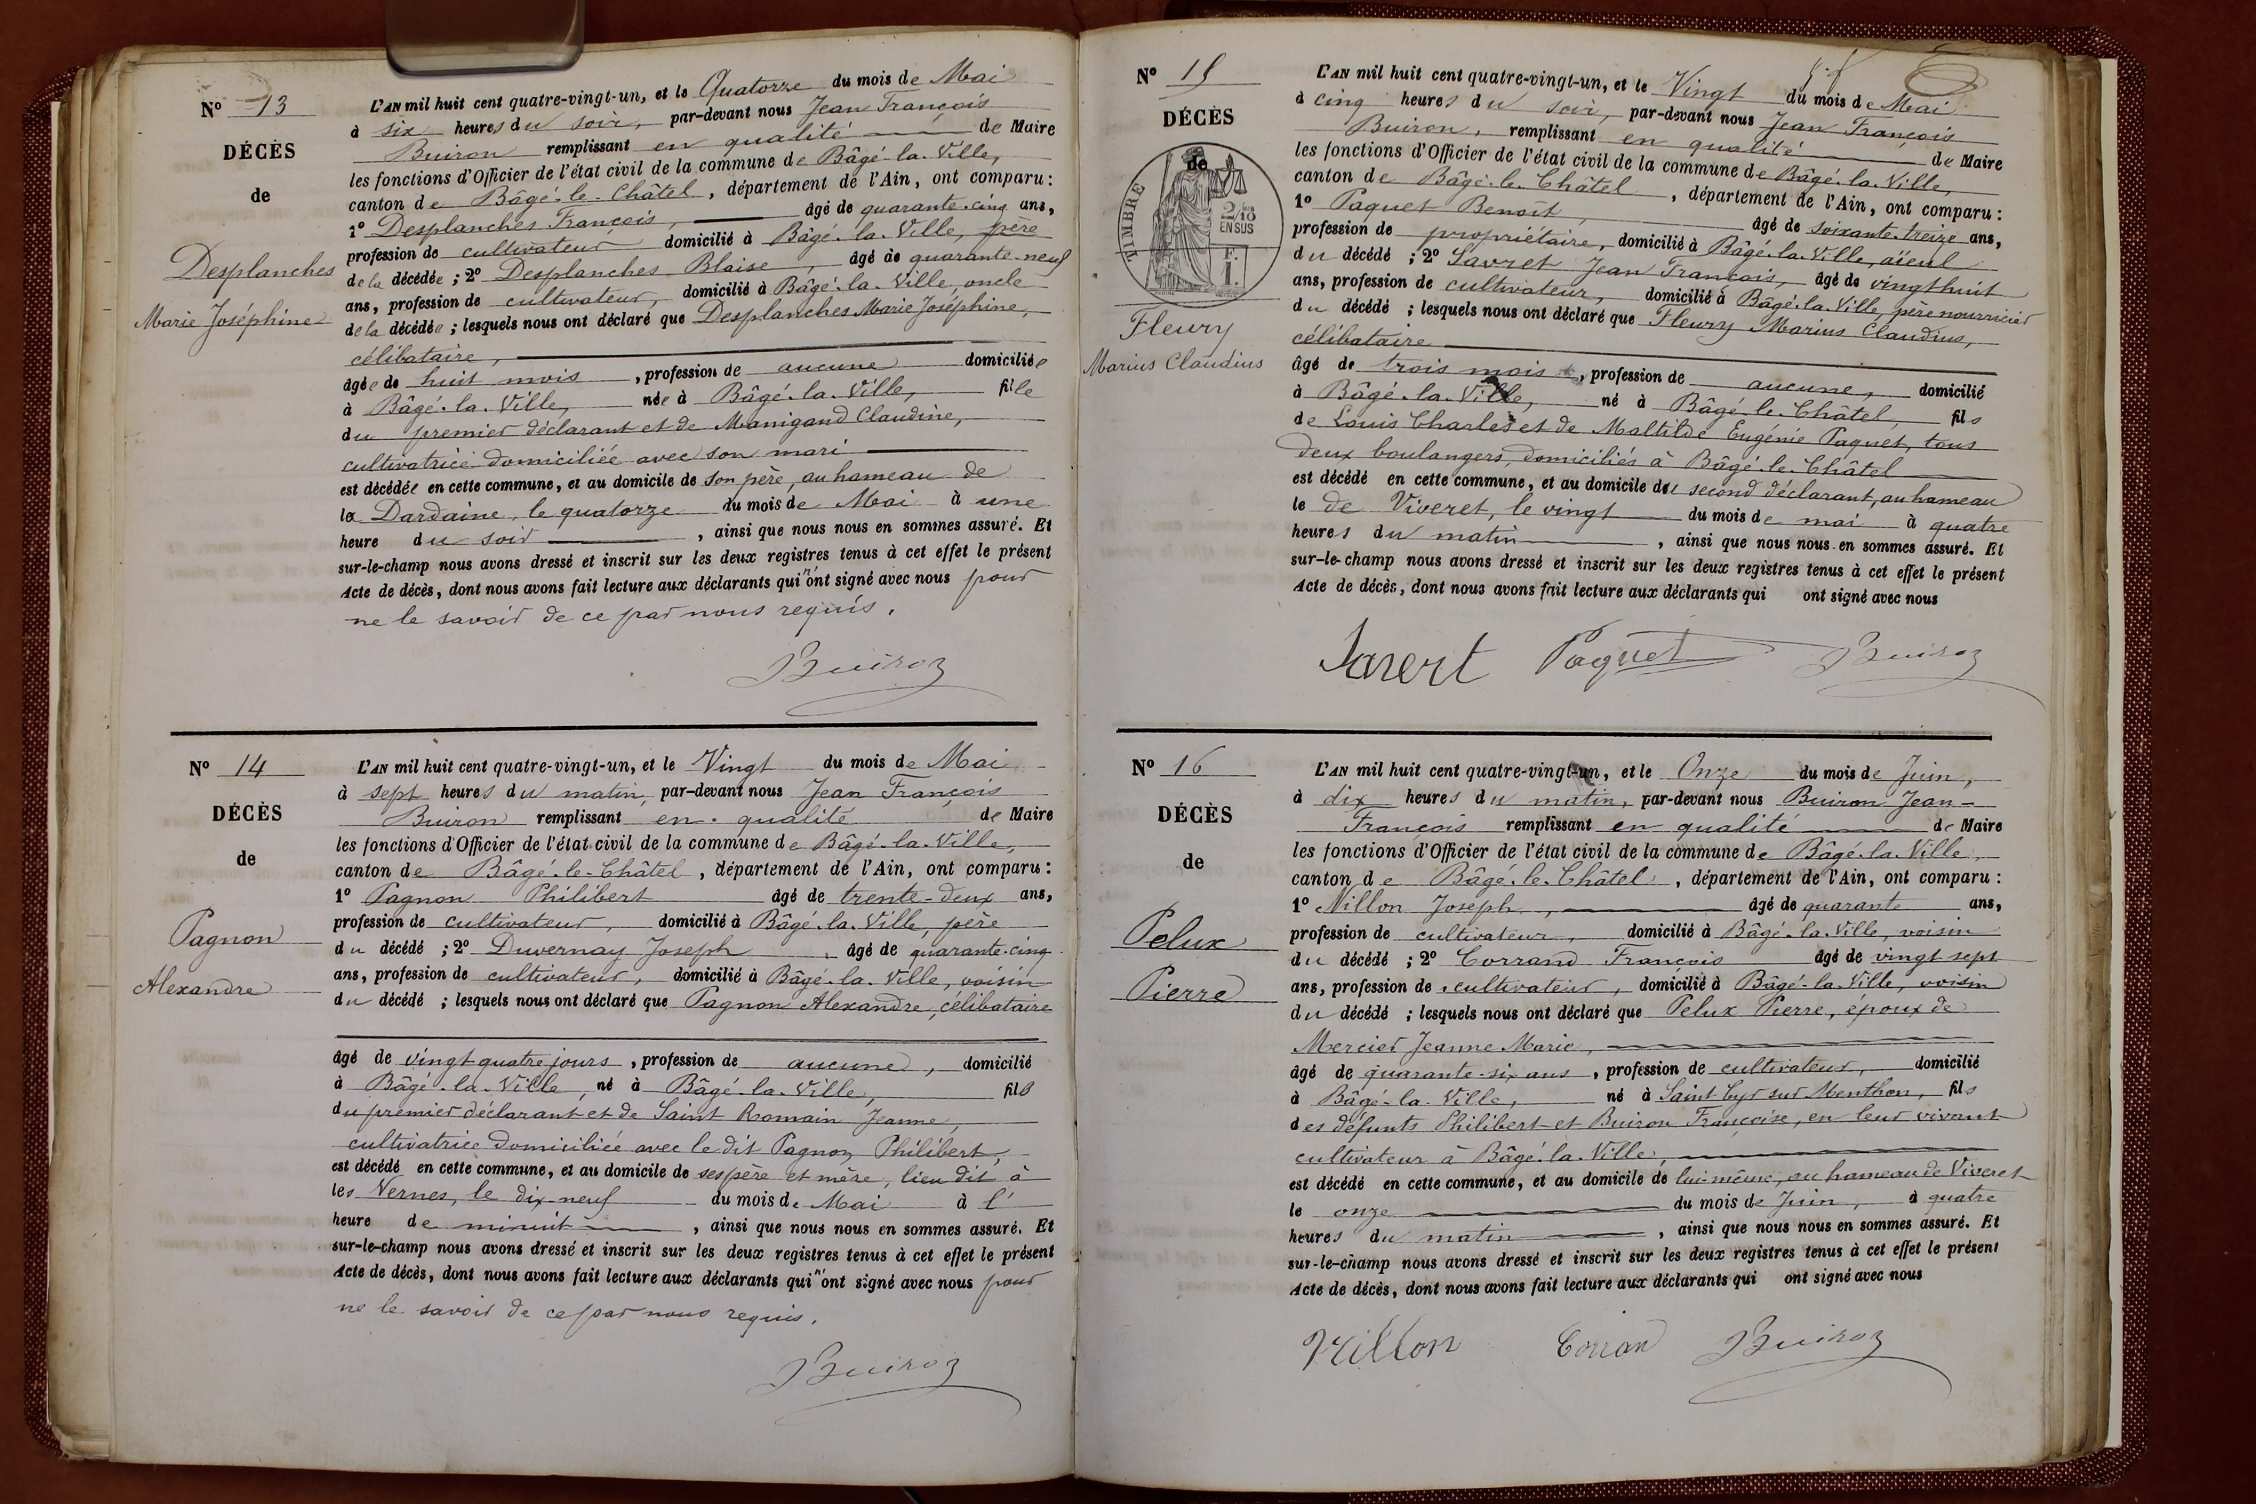 N° 13
DÉCÈS
de
Desplanches
Marie Joséphine
L'AN mil huit cent quatre-vingt-un, et le Quatorze du mois de Mai
à six heures du soir, par-devant nous Jean François
Buiron remplissant en qualité de Maire
les fonctions d'Officier de l'état civil de la commune de Bâgé-la-Ville,
canton de Bâgé-le-Châtel, département de l'Ain, ont comparu :
1° Desplanches François, âgé de quarante-cinq ans,
profession de cultivateur domicilié à Bâgé-la-Ville, père
de la décédée ; 2° Desplanches Blaise, âgé de quarante-neuf
ans, profession de cultivateur, domicilié à Bâgé-la-Ville, oncle
de la décédée ; lesquels nous ont déclaré que Desplanches Marie Joséphine,
célibataire,
âgée de huit mois, profession de aucune domiciliée
à Bâgé-la-Ville, née à Bâgé-la-Ville, fille
du premier déclarant et de Manigand Claudine,
cultivatrice domiciliée avec son mari
est décédée en cette commune, et au domicile de son père, au hameau de
la Dardaine, le quatorze du mois de Mai à une
heure du soir, ainsi que nous nous en sommes assuré. Et
sur-le-champ nous avons dressé et inscrit sur les deux registres tenus à cet effet le présent
Acte de décès, dont nous avons fait lecture aux déclarants qui n'ont signé avec nous pour
ne le savoir de ce par nous requis.
Buiron
N° 14
DÉCÈS
de
Pagnon
Alexandre
L'AN mil huit cent quatre-vingt-un, et le Vingt du mois de Mai
à sept heures du matin, par-devant nous Jean François
Buiron remplissant en qualité de Maire
les fonctions d'Officier de l'état civil de la commune de Bâgé-la-Ville,
canton de Bâgé-le-Châtel, département de l'Ain, ont comparu :
1° Pagnon Philibert âgé de trente-deux ans,
profession de cultivateur, domicilié à Bâgé-la-Ville, père
du décédé ; 2° Duvernay Joseph, âgé de quarante-cinq
ans, profession de cultivateur, domicilié à Bâgé-la-Ville, voisin
du décédé ; lesquels nous ont déclaré que Pagnon Alexandre, célibataire
âgé de vingt quatre jours, profession de aucune, domicilié
à Bâgé-la-Ville, né à Bâgé-la-Ville, fils
du premier déclarant et de Saint Romain Jeanne,
cultivatrice domiciliée avec le dit Pagnon Philibert,
est décédé en cette commune, et au domicile de ses père et mère, lieu dit à
les Vernes, le dix-neuf du mois de Mai à l'
heure de minuit, ainsi que nous nous en sommes assuré. Et
sur-le-champ nous avons dressé et inscrit sur les deux registres tenus à cet effet le présent
Acte de décès, dont nous avons fait lecture aux déclarants qui n'ont signé avec nous pour
ne le savoir de ce par nous requis.
Buiron
N° 15
DÉCÈS
de
TIMBRE
2/10 EN SUS
F. 1.
Fleury
Marius Claudius
L'AN mil huit cent quatre-vingt-un, et le Vingt du mois de Mai
à cinq heures du soir, par-devant nous Jean François
Buiron, remplissant en qualité de Maire
les fonctions d'Officier de l'état civil de la commune de Bâgé-la-Ville,
canton de Bâgé-le-Châtel, département de l'Ain, ont comparu :
1° Paquet Benoît, âgé de soixante-treize ans,
profession de propriétaire, domicilié à Bâgé-la-Ville, aïeul
du décédé ; 2° Savret Jean François, âgé de vingt huit
ans, profession de cultivateur, domicilié à Bâgé-la-Ville, père nourricier
du décédé ; lesquels nous ont déclaré que Fleury Marius Claudius,
célibataire
âgé de trois mois, profession de aucune, domicilié
à Bâgé-la-Ville, né à Bâgé-le-Châtel, fils
de Louis Charles et de Maltilde Eugénie Paquet, tous
deux boulangers, domiciliés à Bâgé-le-Châtel
est décédé en cette commune, et au domicile du second déclarant, au hameau
le de Viveret, le vingt du mois de mai à quatre
heures du matin, ainsi que nous nous en sommes assuré. Et
sur-le-champ nous avons dressé et inscrit sur les deux registres tenus à cet effet le présent
Acte de décès, dont nous avons fait lecture aux déclarants qui ont signé avec nous
Savert Paquet Buiron
N° 16
DÉCÈS
de
Pelux
Pierre
L'AN mil huit cent quatre-vingt-un, et le Onze du mois de Juin,
à dix heures du matin, par-devant nous Buiron Jean-
François remplissant en qualité de Maire
les fonctions d'Officier de l'état civil de la commune de Bâgé-la-Ville,
canton de Bâgé-le-Châtel, département de l'Ain, ont comparu :
1° Millon Joseph, âgé de quarante ans,
profession de cultivateur, domicilié à Bâgé-la-Ville, voisin
du décédé ; 2° Corrand François âgé de vingt sept
ans, profession de cultivateur, domicilié à Bâgé-la-Ville, voisin
du décédé ; lesquels nous ont déclaré que Pelux Pierre, époux de
Mercier Jeanne Marie,
âgé de quarante-six ans, profession de cultivateur, domicilié
à Bâgé-la-Ville, né à Saint Cyr sur Menthon, fils
des défunts Philibert et Buiron Françoise, en leur vivant
cultivateur à Bâgé-la-Ville,
est décédé en cette commune, et au domicile de lui-même, au hameau de Viveret
le onze du mois de Juin, à quatre
heures du matin, ainsi que nous nous en sommes assuré. Et
sur-le-champ nous avons dressé et inscrit sur les deux registres tenus à cet effet le présent
Acte de décès, dont nous avons fait lecture aux déclarants qui ont signé avec nous
Millon Corran Buiron